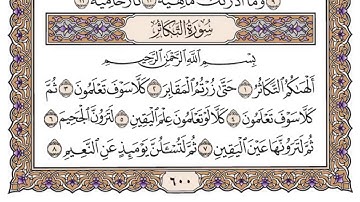 ٩ وَمَآ أَدْرَىٰكَ مَا هِيَهْ ١٠ نَارٌ حَامِيَةٌ ١١
سُورَةُ التَّكَاثُرِ
بِسْمِ ٱللَّهِ ٱلرَّحْمَٰنِ ٱلرَّحِيمِ
أَلْهَىٰكُمُ ٱلتَّكَاثُرُ ١ حَتَّىٰ زُرْتُمُ ٱلْمَقَابِرَ ٢ كَلَّا سَوْفَ تَعْلَمُونَ ٣ ثُمَّ
كَلَّا سَوْفَ تَعْلَمُونَ ٤ كَلَّا لَوْ تَعْلَمُونَ عِلْمَ ٱلْيَقِينِ ٥ لَتَرَوُنَّ ٱلْجَحِيمَ ٦
ثُمَّ لَتَرَوُنَّهَا عَيْنَ ٱلْيَقِينِ ٧ ثُمَّ لَتُسْـَٔلُنَّ يَوْمَئِذٍ عَنِ ٱلنَّعِيمِ ٨
٦٠٠